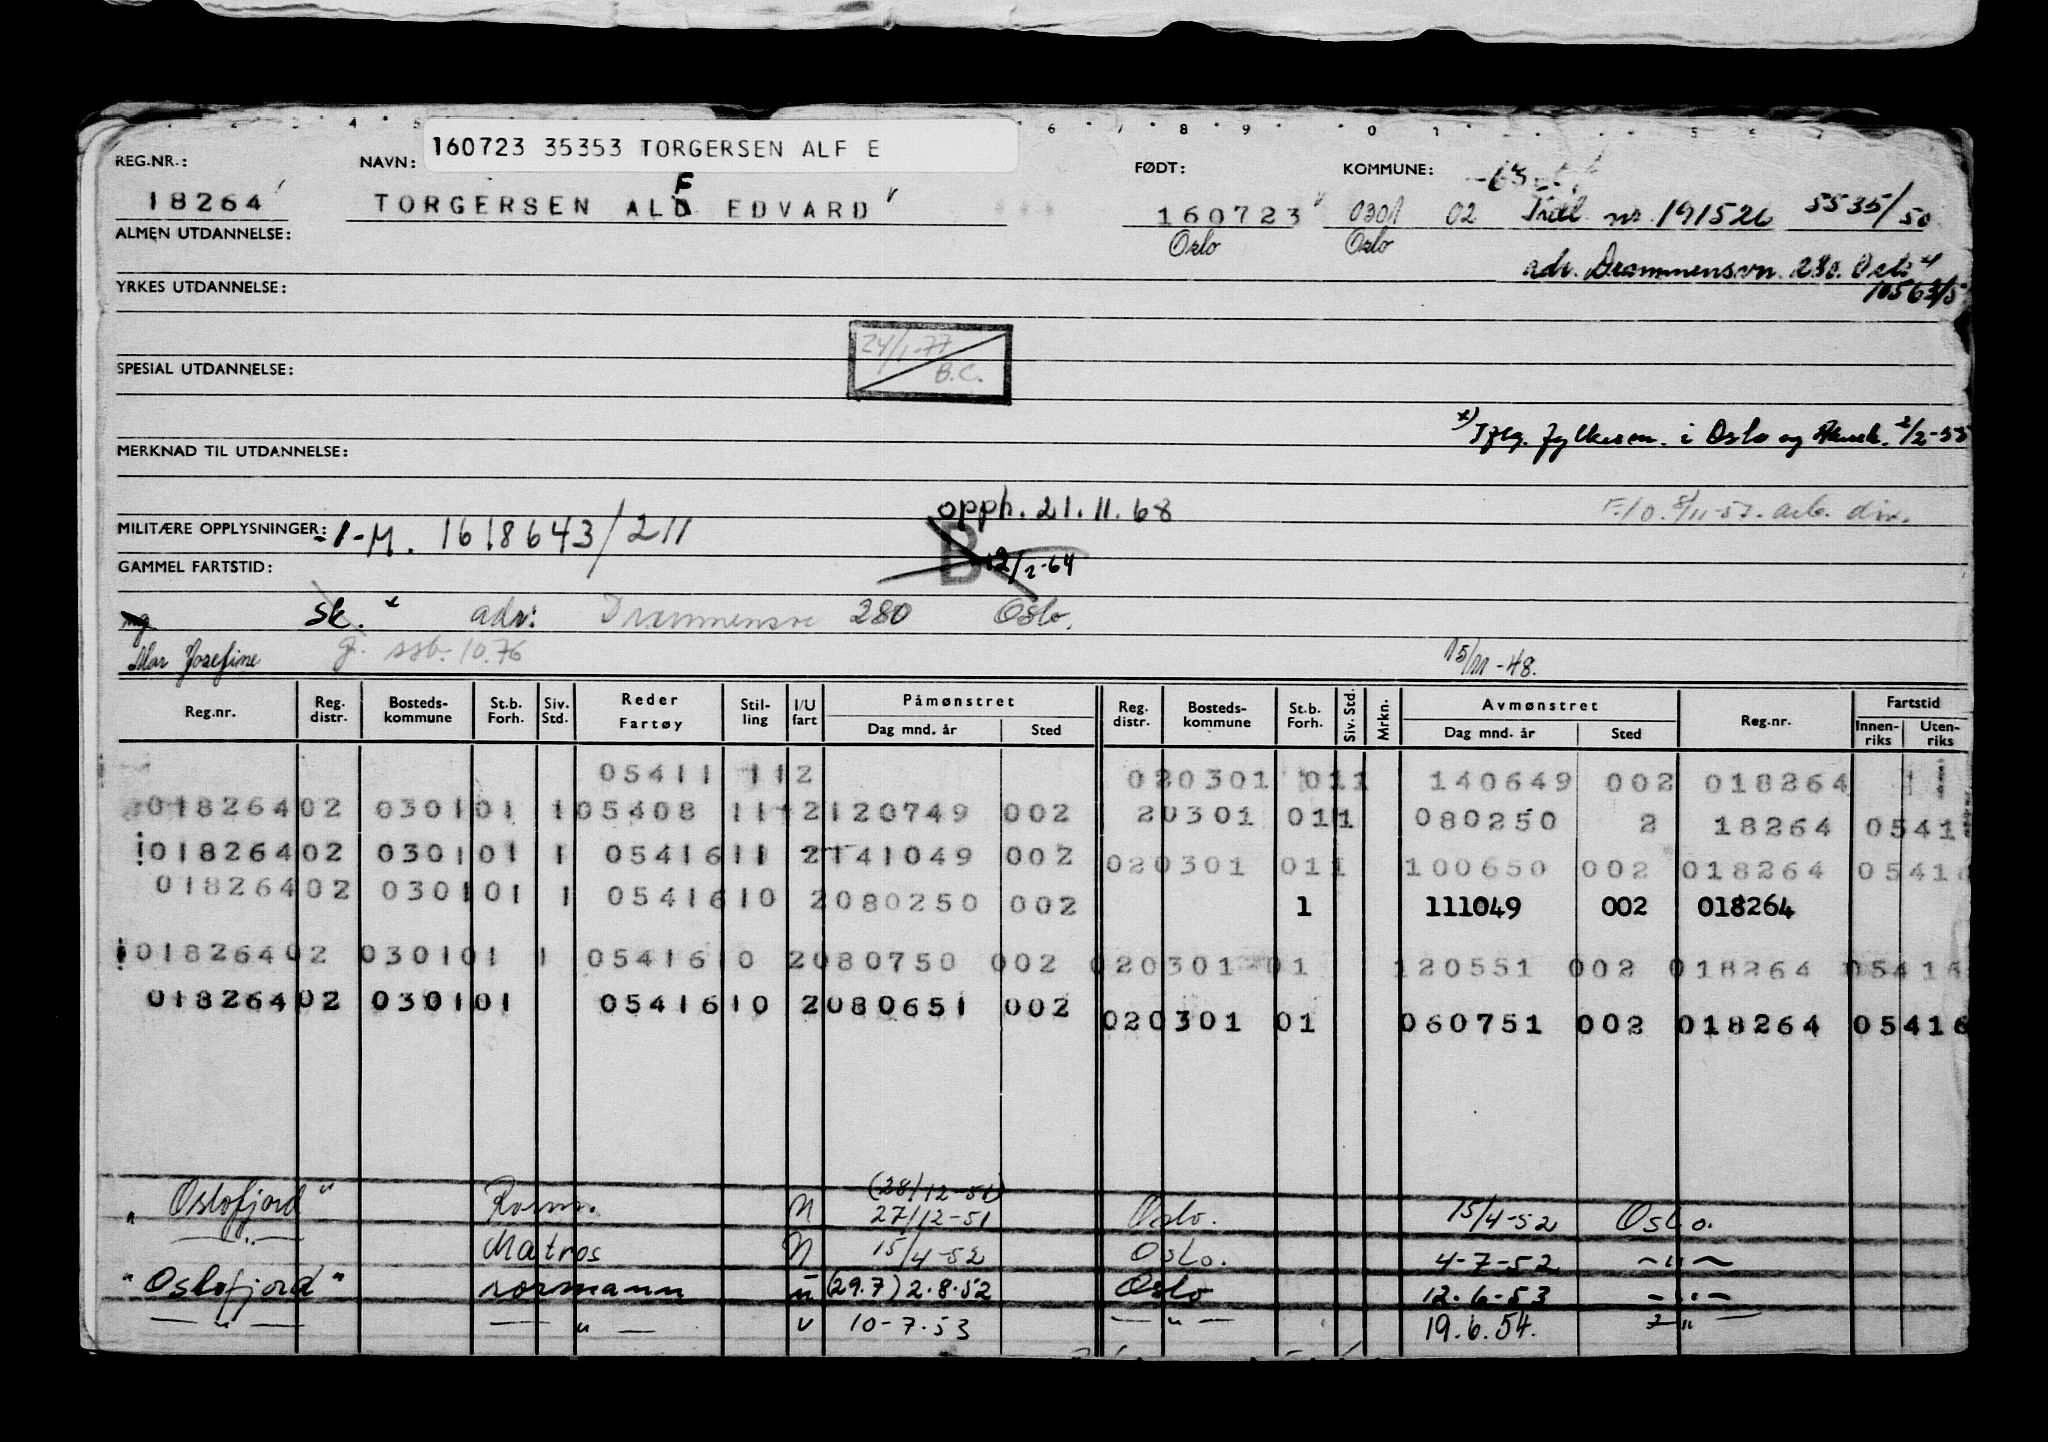 160723 35353 TORGERSEN ALF E
REG.NR.: NAVN: FØDT: KOMMUNE:
18264 TORGERSEN ALF EDVARD 160723 0301 02 nr. 191526 5535/50
Oslo Oslo
ALMEN UTDANNELSE:
adr. Drammensvn. 280. Oslo
YRKES UTDANNELSE:
24/1-77
B.C.
SPESIAL UTDANNELSE:
x) i Oslo og 2/2-55
MERKNAD TIL UTDANNELSE:
opph. 21.11.68
MILITÆRE OPPLYSNINGER: 1-M. 1618643/211
B 12/2-64
GAMMEL FARTSTID:
mg sk. x adr: Drammensv 280 Oslo.
Mor Josefine g. ssb. 10.76 15/11-48.
Reg.nr. Reg. distr. Bosteds-kommune St.b. Forh. Siv. Std. Reder Fartøy Stil-ling I/U fart Påmønstret Dag mnd. år Sted Reg. distr. Bosteds-kommune St.b. Forh. Siv. Std. Mrkn. Avmønstret Dag mnd. år Sted Reg.nr. Fartstid Innen-riks Uten-riks
05411 112 020301 011 140649 002 018264
01826402 030101 105408 11 2120749 002 20301 011 080250 2 18264 0541
01826402 030101 1 0541611 2141049 002 020301 011 100650 002 018264 05416
01826402 030101 1 0541610 2080250 002 1 111049 002 018264
01826402 030101 1 0541610 2080750 002 020301 01 120551 002 018264 05416
01826402 030101 0541610 2080651 002 020301 01 060751 002 018264 05416
(28/12-51)
"Oslofjord" Rorm. U 27/12-51 Oslo. 15/4-52 Oslo.
— " — Matros U 15/4-52 Oslo. 4-7-52 — " —
"Oslofjord" rormann u (29.7) 2.8.52 Oslo 12.6-53 — " —
— " — — " — u 10-7.53 — " — 19.6.54. — " —